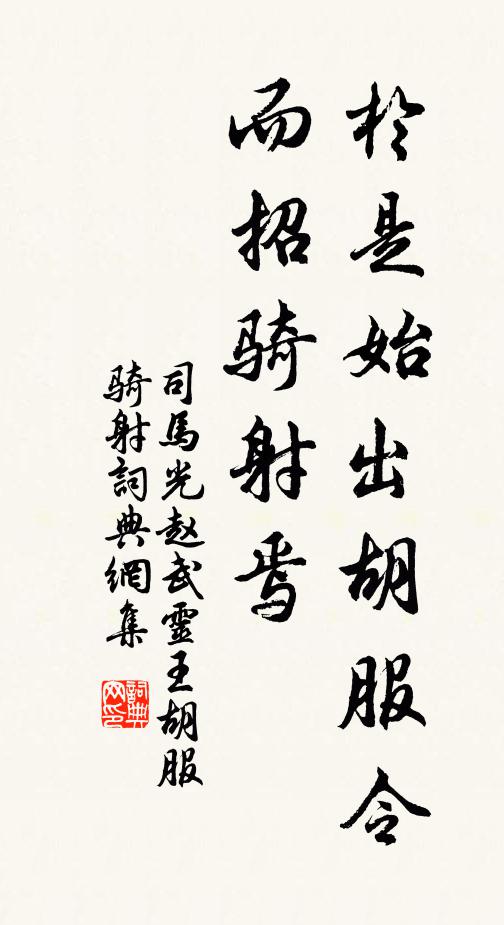 於是始出胡服令
而招骑射焉
司馬光赵武靈王胡服
骑射詞典網集
詞典
网印